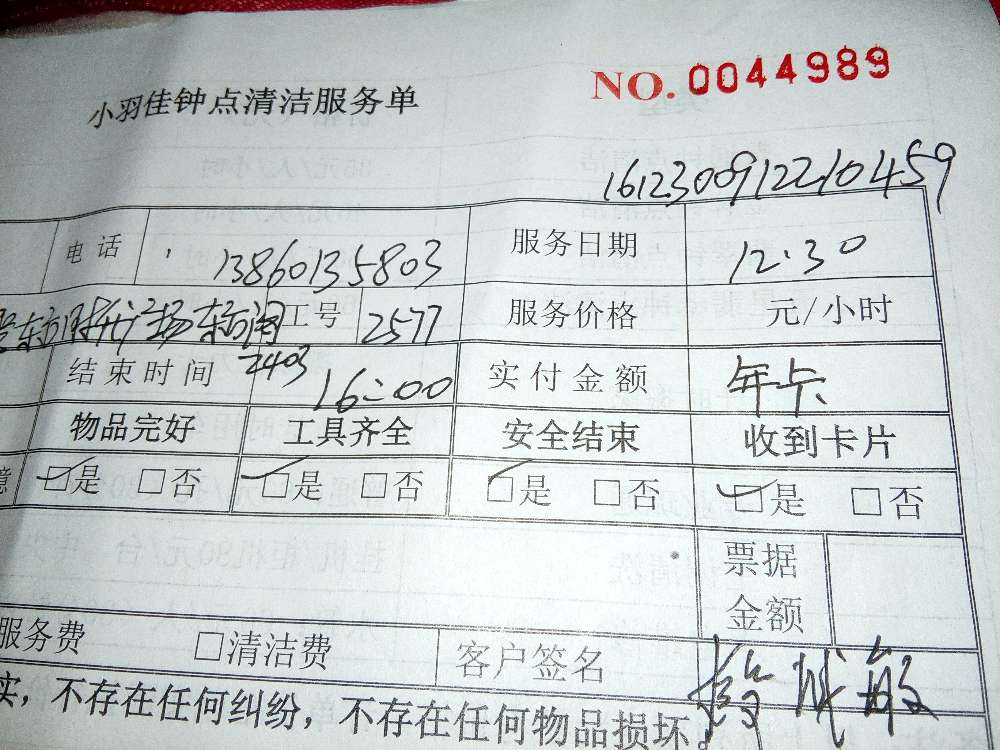 NO.0044989
小羽佳钟点清洁服务单
161230091221 0459
电话 13860135803 服务日期 12.30
东方时代广场东方阁 工号 2577 服务价格 元/小时
2403
结束时间 16:00 实付金额 年卡
物品完好 工具齐全 安全结束 收到卡片
境 □是 □否 □是 □否 □是 □否 □是 □否
票据
金额
服务费 □清洁费 客户签名
实，不存在任何纠纷，不存在任何物品损坏。